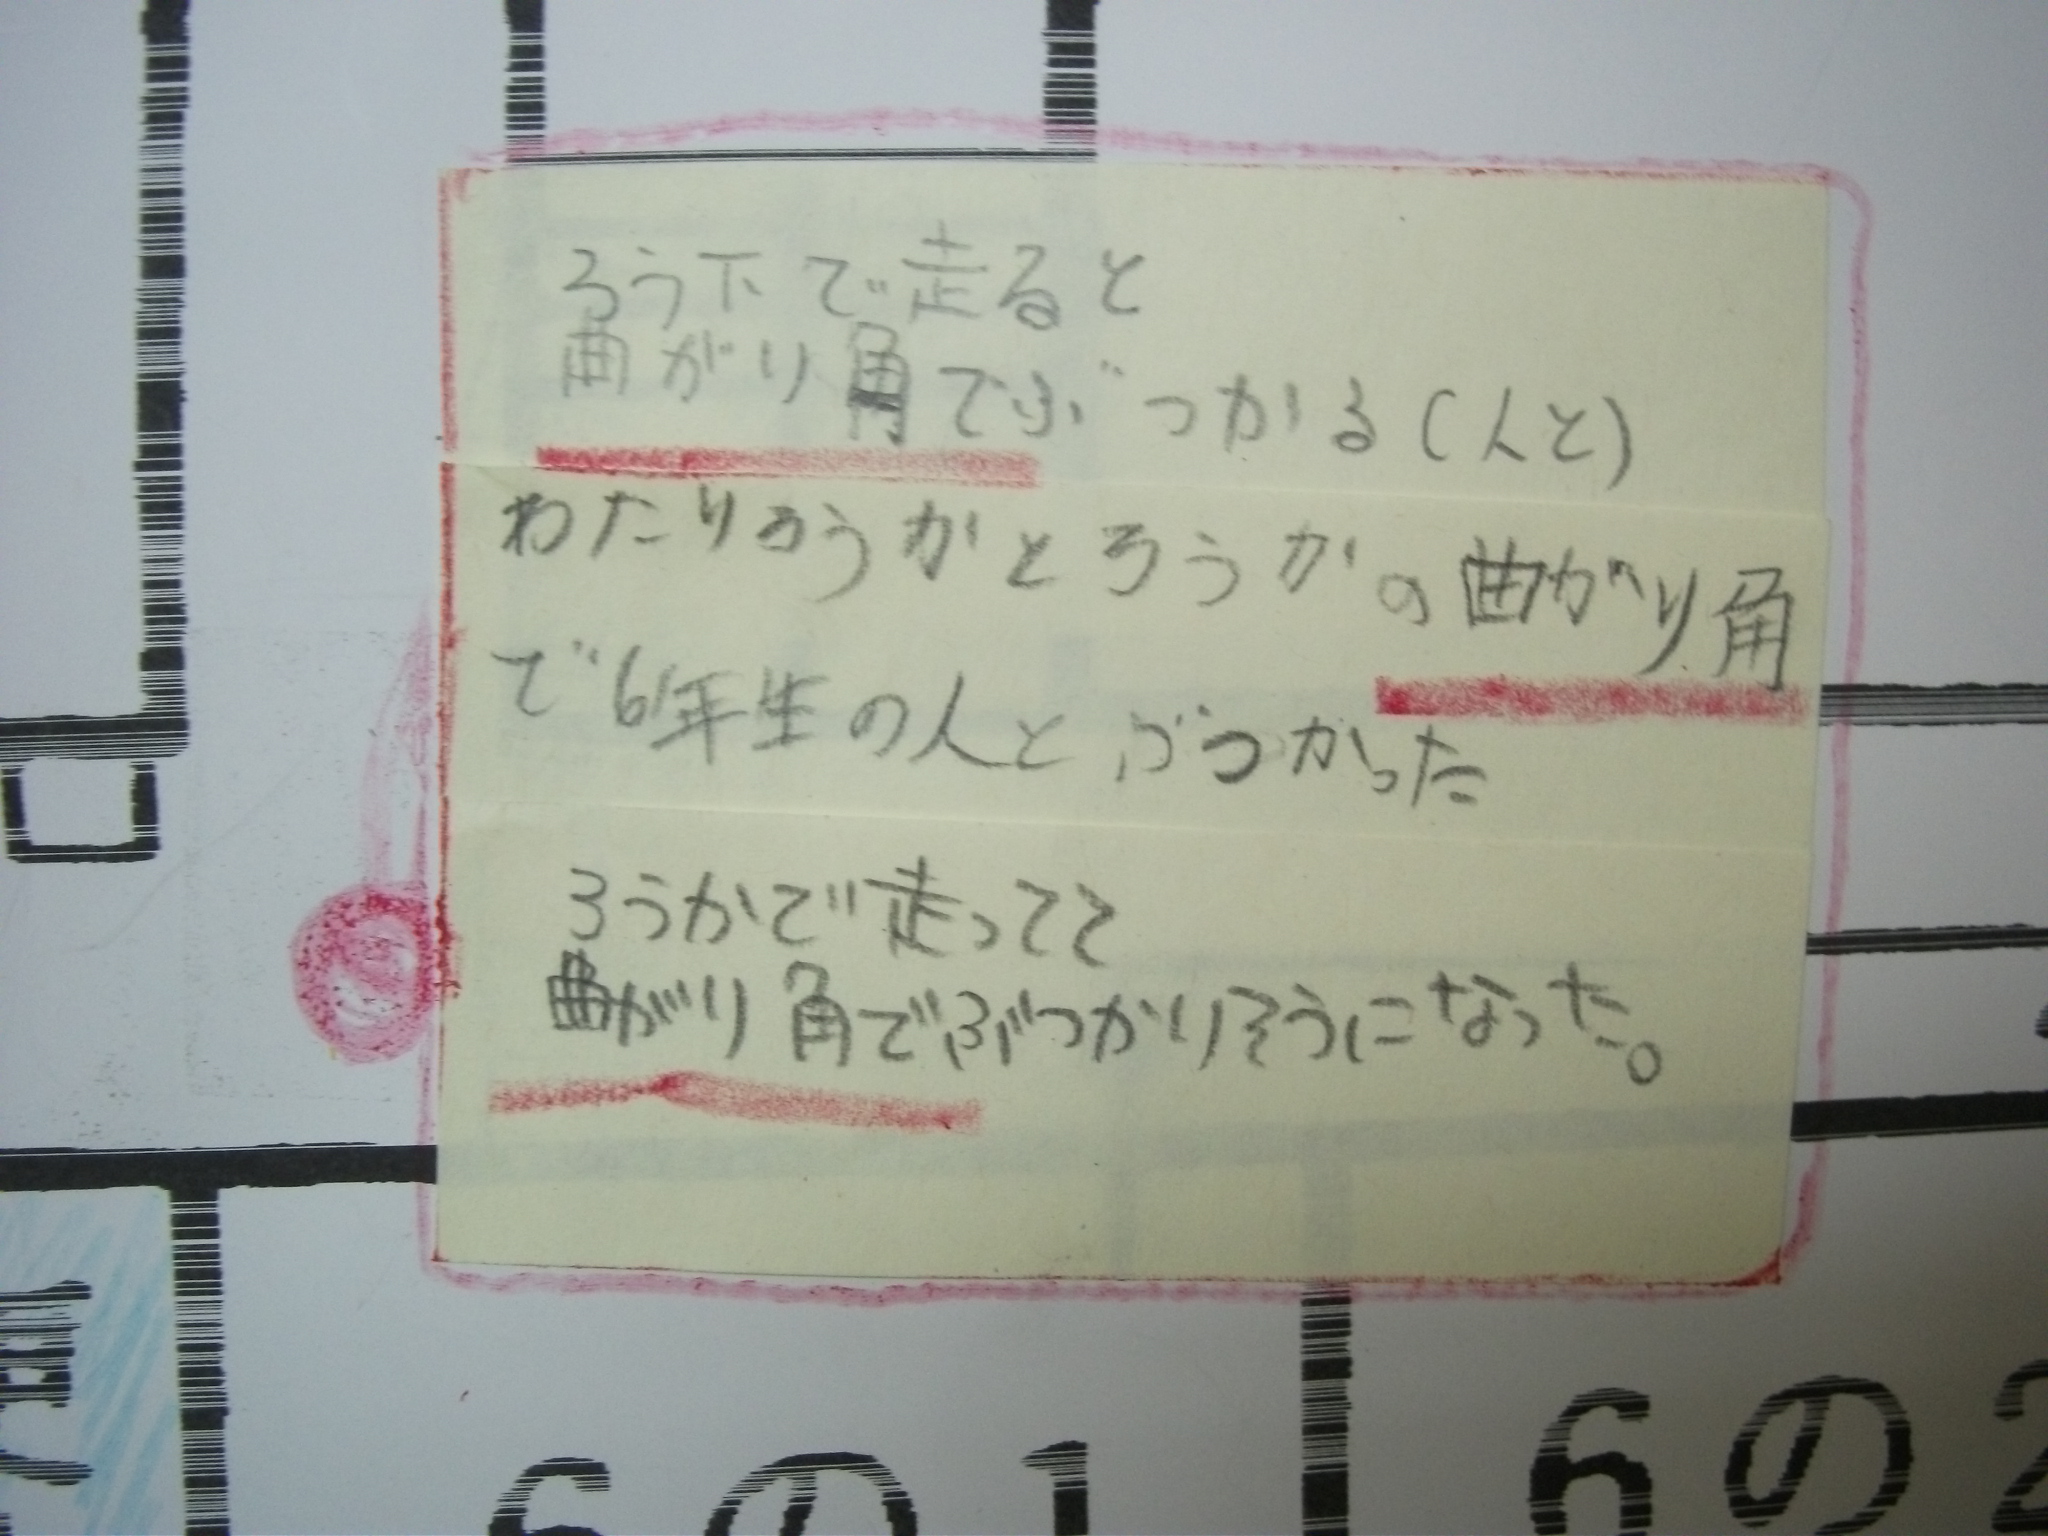 ろう下で走ると
曲がり角でぶつかる(人と)
わたりろうかとろうかの曲がり角
で6年生の人とぶつかった
ろうかで走ってて
曲がり角でぶつかりそうになった。
6の1
6の2